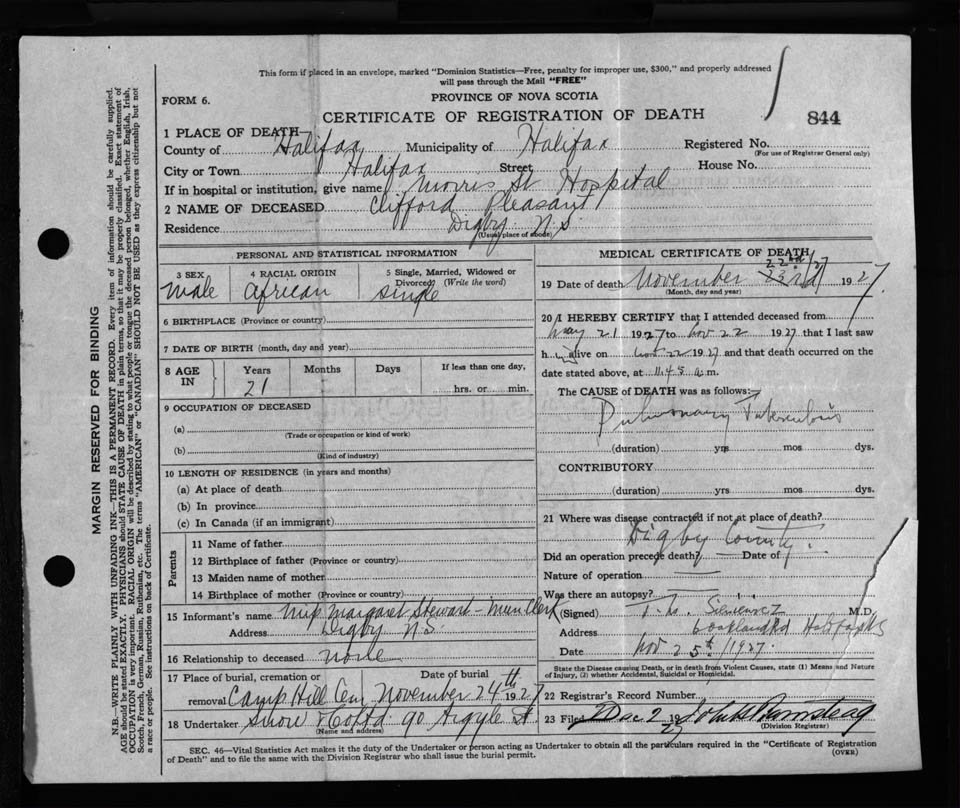 This form if placed in an envelope, marked "Dominion Statistics—Free, penalty for improper use, $300," and properly addressed
will pass through the Mail "FREE"
PROVINCE OF NOVA SCOTIA
FORM 6.
CERTIFICATE OF REGISTRATION OF DEATH
844
1 PLACE OF DEATH
County of Halifax Municipality of Halifax Registered No.
(For use of Registrar General only)
City or Town Halifax Street House No.
If in hospital or institution, give name Morris St Hospital
2 NAME OF DECEASED Clifford Pleasant
Residence Digby N.S.
(Usual place of abode)
PERSONAL AND STATISTICAL INFORMATION
3 SEX 4 RACIAL ORIGIN 5 Single, Married, Widowed or Divorced (Write the word)
Male African Single
6 BIRTHPLACE (Province or country)
7 DATE OF BIRTH (month, day and year)
8 AGE IN Years Months Days If less than one day,
21 hrs. or min.
9 OCCUPATION OF DECEASED
(a)
(Trade or occupation or kind of work)
(b)
(Kind of industry)
10 LENGTH OF RESIDENCE (in years and months)
(a) At place of death
(b) In province
(c) In Canada (if an immigrant)
Parents
11 Name of father
12 Birthplace of father (Province or country)
13 Maiden name of mother
14 Birthplace of mother (Province or country)
15 Informant's name Margaret Stewart - Mun Clerk
Address Digby N.S.
16 Relationship to deceased none
17 Place of burial, cremation or Date of burial
removal Camp Hill Cem November 24th 1927
18 Undertaker Snow & Co Ltd 90 Argyle St.
(Name and address)
MEDICAL CERTIFICATE OF DEATH
22nd/27
19 Date of death November 23rd 1927
(Month, day and year)
20 I HEREBY CERTIFY that I attended deceased from
May 21 1927 to Nov 22 1927 that I last saw
h im alive on Nov 22 1927 and that death occurred on the
date stated above, at 11.45 a.m.
The CAUSE of DEATH was as follows:
Pulmonary Tuberculosis
(duration) yrs mos dys.
CONTRIBUTORY
(duration) yrs mos dys.
21 Where was disease contracted if not at place of death?
Digby County.
Did an operation precede death? — Date of
Nature of operation —
Was there an autopsy? —
(Signed) M.D.
Address 6 Oakland Rd Halifax NS
Date Nov 25th/1927.
State the Disease causing Death, or in death from Violent Causes, state (1) Means and Nature
of Injury, (2) whether Accidental, Suicidal or Homicidal.
22 Registrar's Record Number
23 Filed Dec 2 1927
(Division Registrar)
SEC. 46—Vital Statistics Act makes it the duty of the Undertaker or person acting as Undertaker to obtain all the particulars required in the "Certificate of Registration
of Death" and to file the same with the Division Registrar who shall issue the burial permit.
(OVER)
MARGIN RESERVED FOR BINDING
N.B.—WRITE PLAINLY WITH UNFADING INK—THIS IS A PERMANENT RECORD. Every item of information should be carefully supplied.
AGE should be stated EXACTLY. PHYSICIANS should STATE CAUSE OF DEATH in plain terms, so that it may be properly classified. Exact statement of
OCCUPATION is very important. RACIAL ORIGIN will be described by stating to what people or tongue the deceased person belonged, whether English, Irish,
Scotch, French, German, Russian, Ruthenian, etc. The terms "AMERICAN" or "CANADIAN" SHOULD NOT BE USED as they express citizenship but not
a race or people. See instructions on back of Certificate.